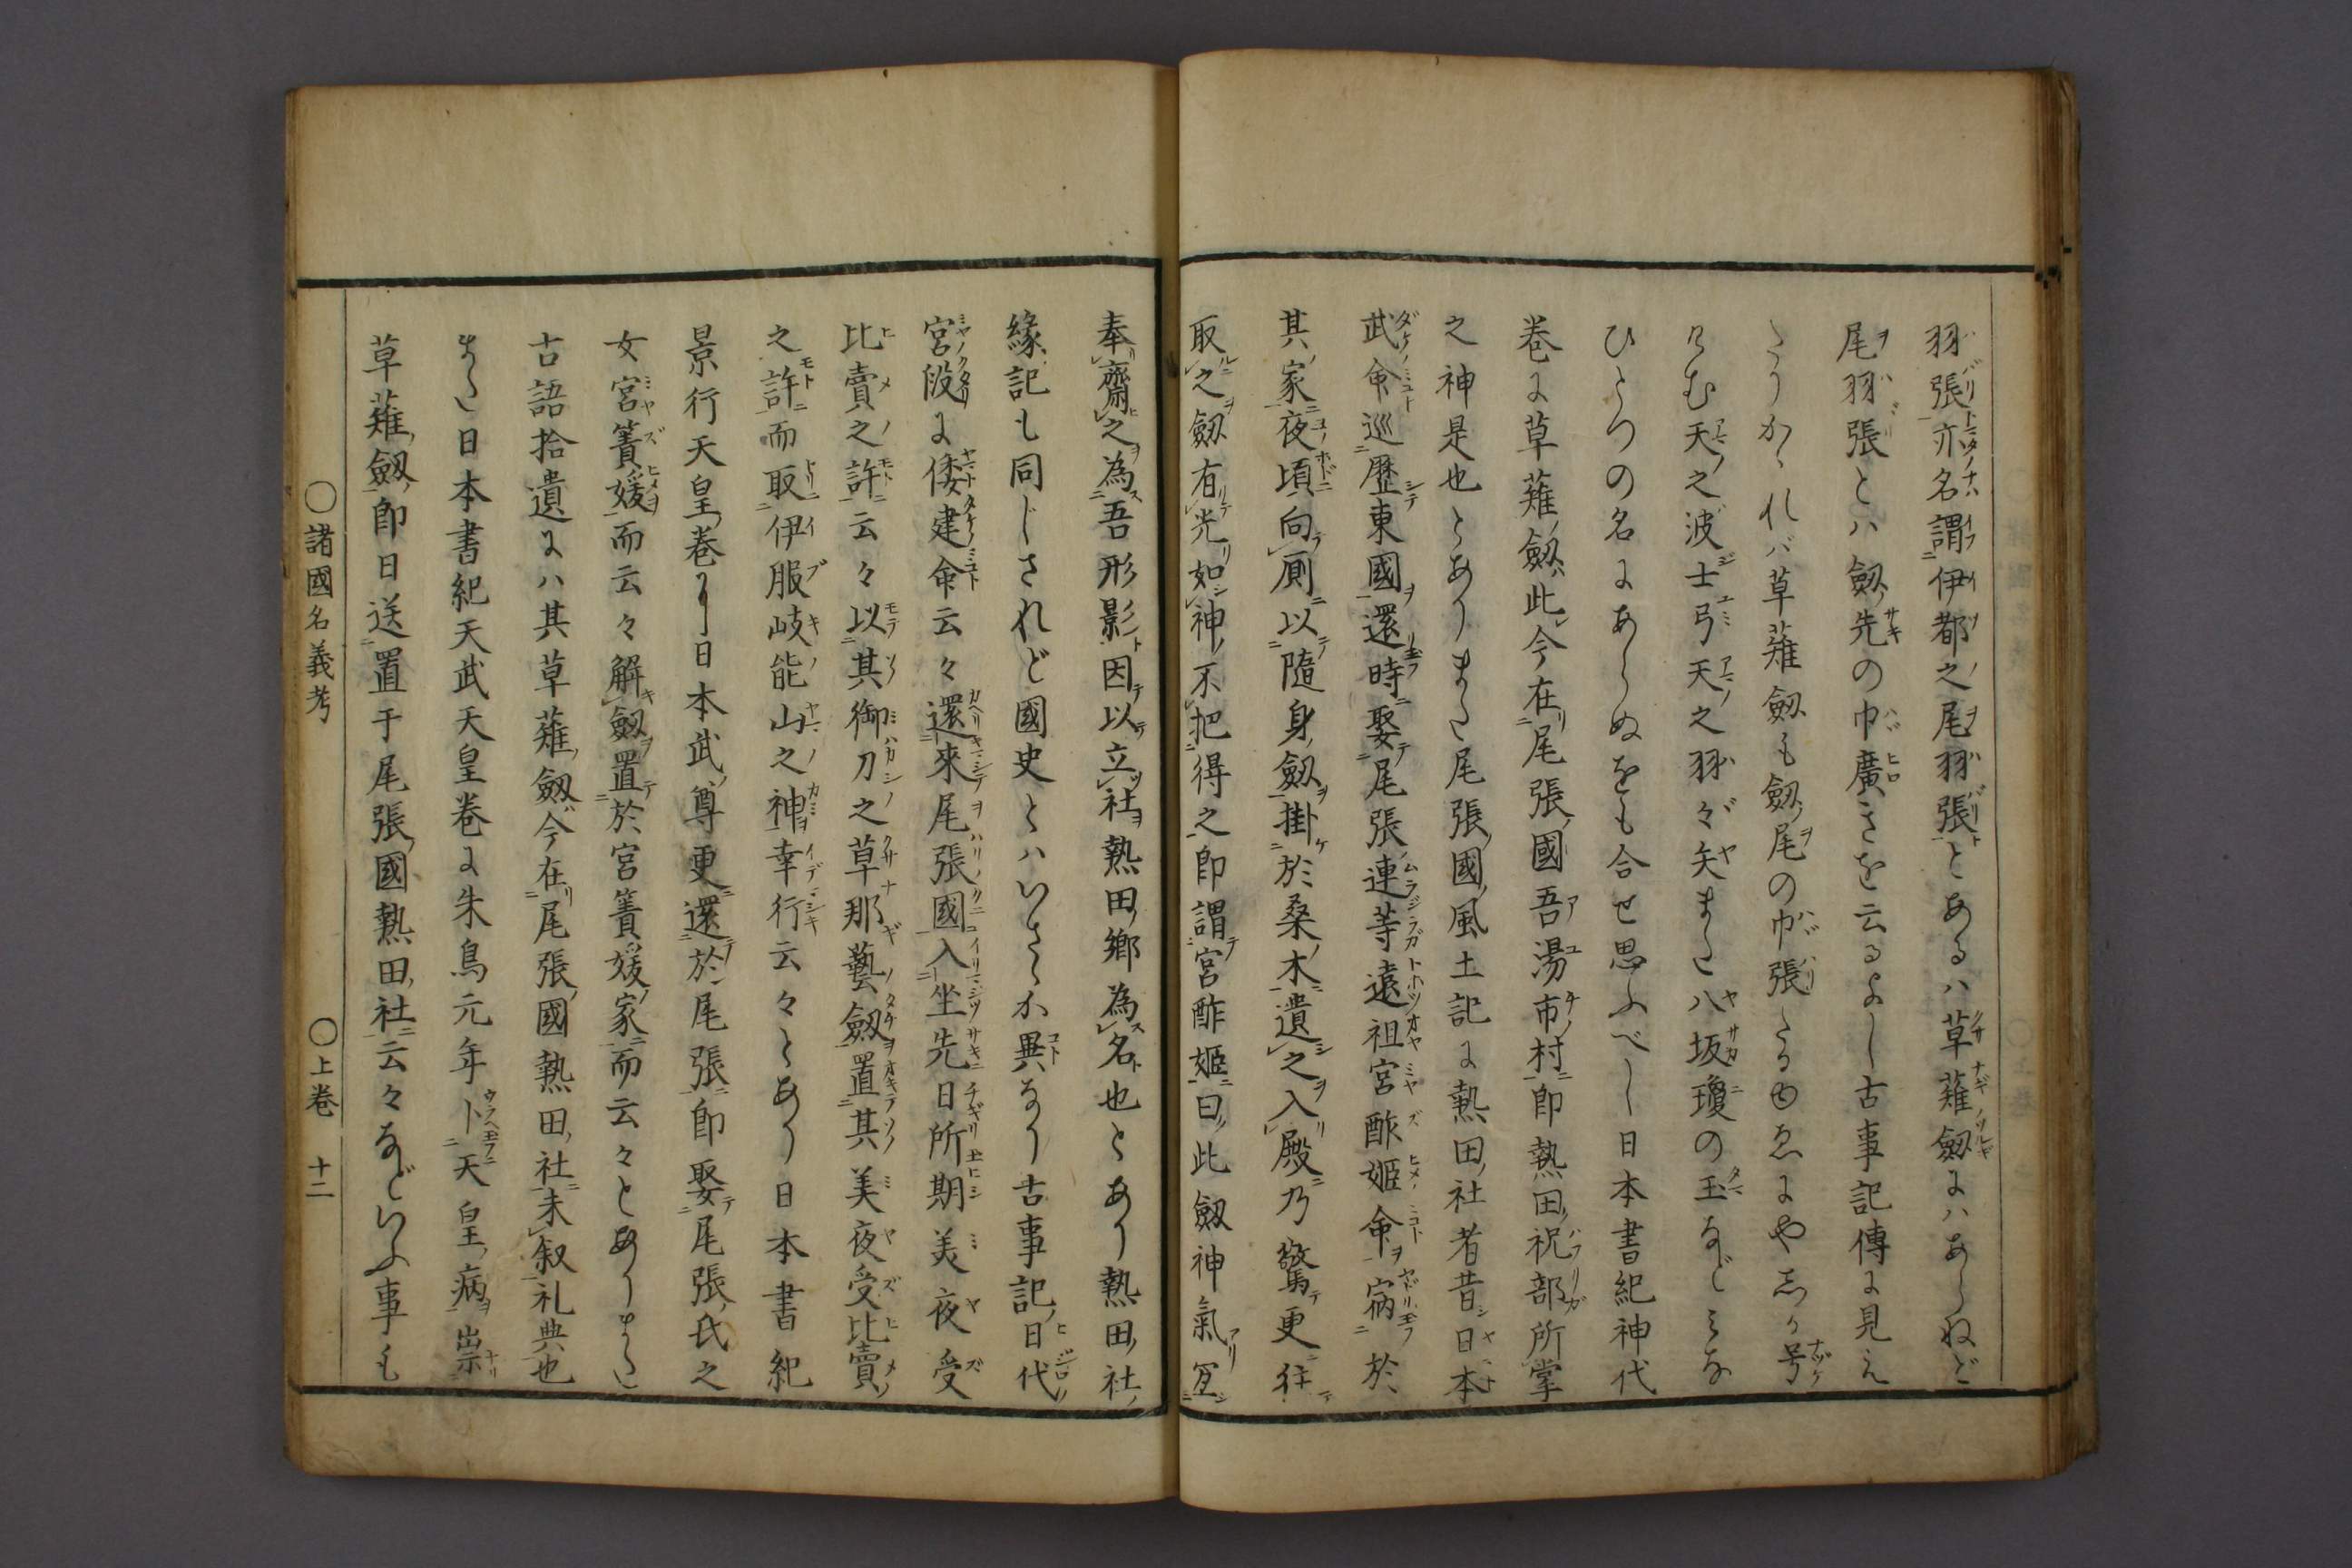 羽張亦名謂伊都之尾羽張とあるハ草薙劔にハあらねど
尾羽張とハ劔先の巾廣きを云るよし古事記傳に見え
たりかゝれバ草薙劔も劔尾の巾張たるゆゑにやしか号
けむ天之波士弓天之羽々矢また八坂瓊の玉などみな
ひとつの名にあらぬをも合せ思ふべし日本書紀神代
巻に草薙劔此今在尾張國吾湯市村即熱田祝部所掌
之神是也とありまた尾張國風土記に熱田社者昔日本
武命巡歷東國還時娶尾張連等遠祖宮酢姫命宿於
其家夜頃向厠以隨身劔掛於桑木遺之入殿乃驚更往
取之劔有光如神不把得之即謂宮酢姫曰此劔神氣宜
奉齋之為吾形影因以立社熱田鄉為名也とあり熱田社
緣記も同じされど國史とハいさゝか異なり古事記日代
宮段に倭建命云々還來尾張國入坐先日所期美夜受
比賣之許云々以其御刀之草那藝劔置其美夜受比賣
之許而取伊服岐能山之神幸行云々とあり日本書紀
景行天皇巻に日本武尊更還於尾張即娶尾張氏之
女宮簀媛而云々解劔置於宮簀媛家而云々とありまた
古語拾遺にハ其草薙劔今在尾張國熱田社未叙礼典也
また日本書紀天武天皇巻に朱鳥元年卜天皇病祟
草薙劔即日送置于尾張國熱田社云々などいふ事も
〇諸國名義考 〇上巻 十二